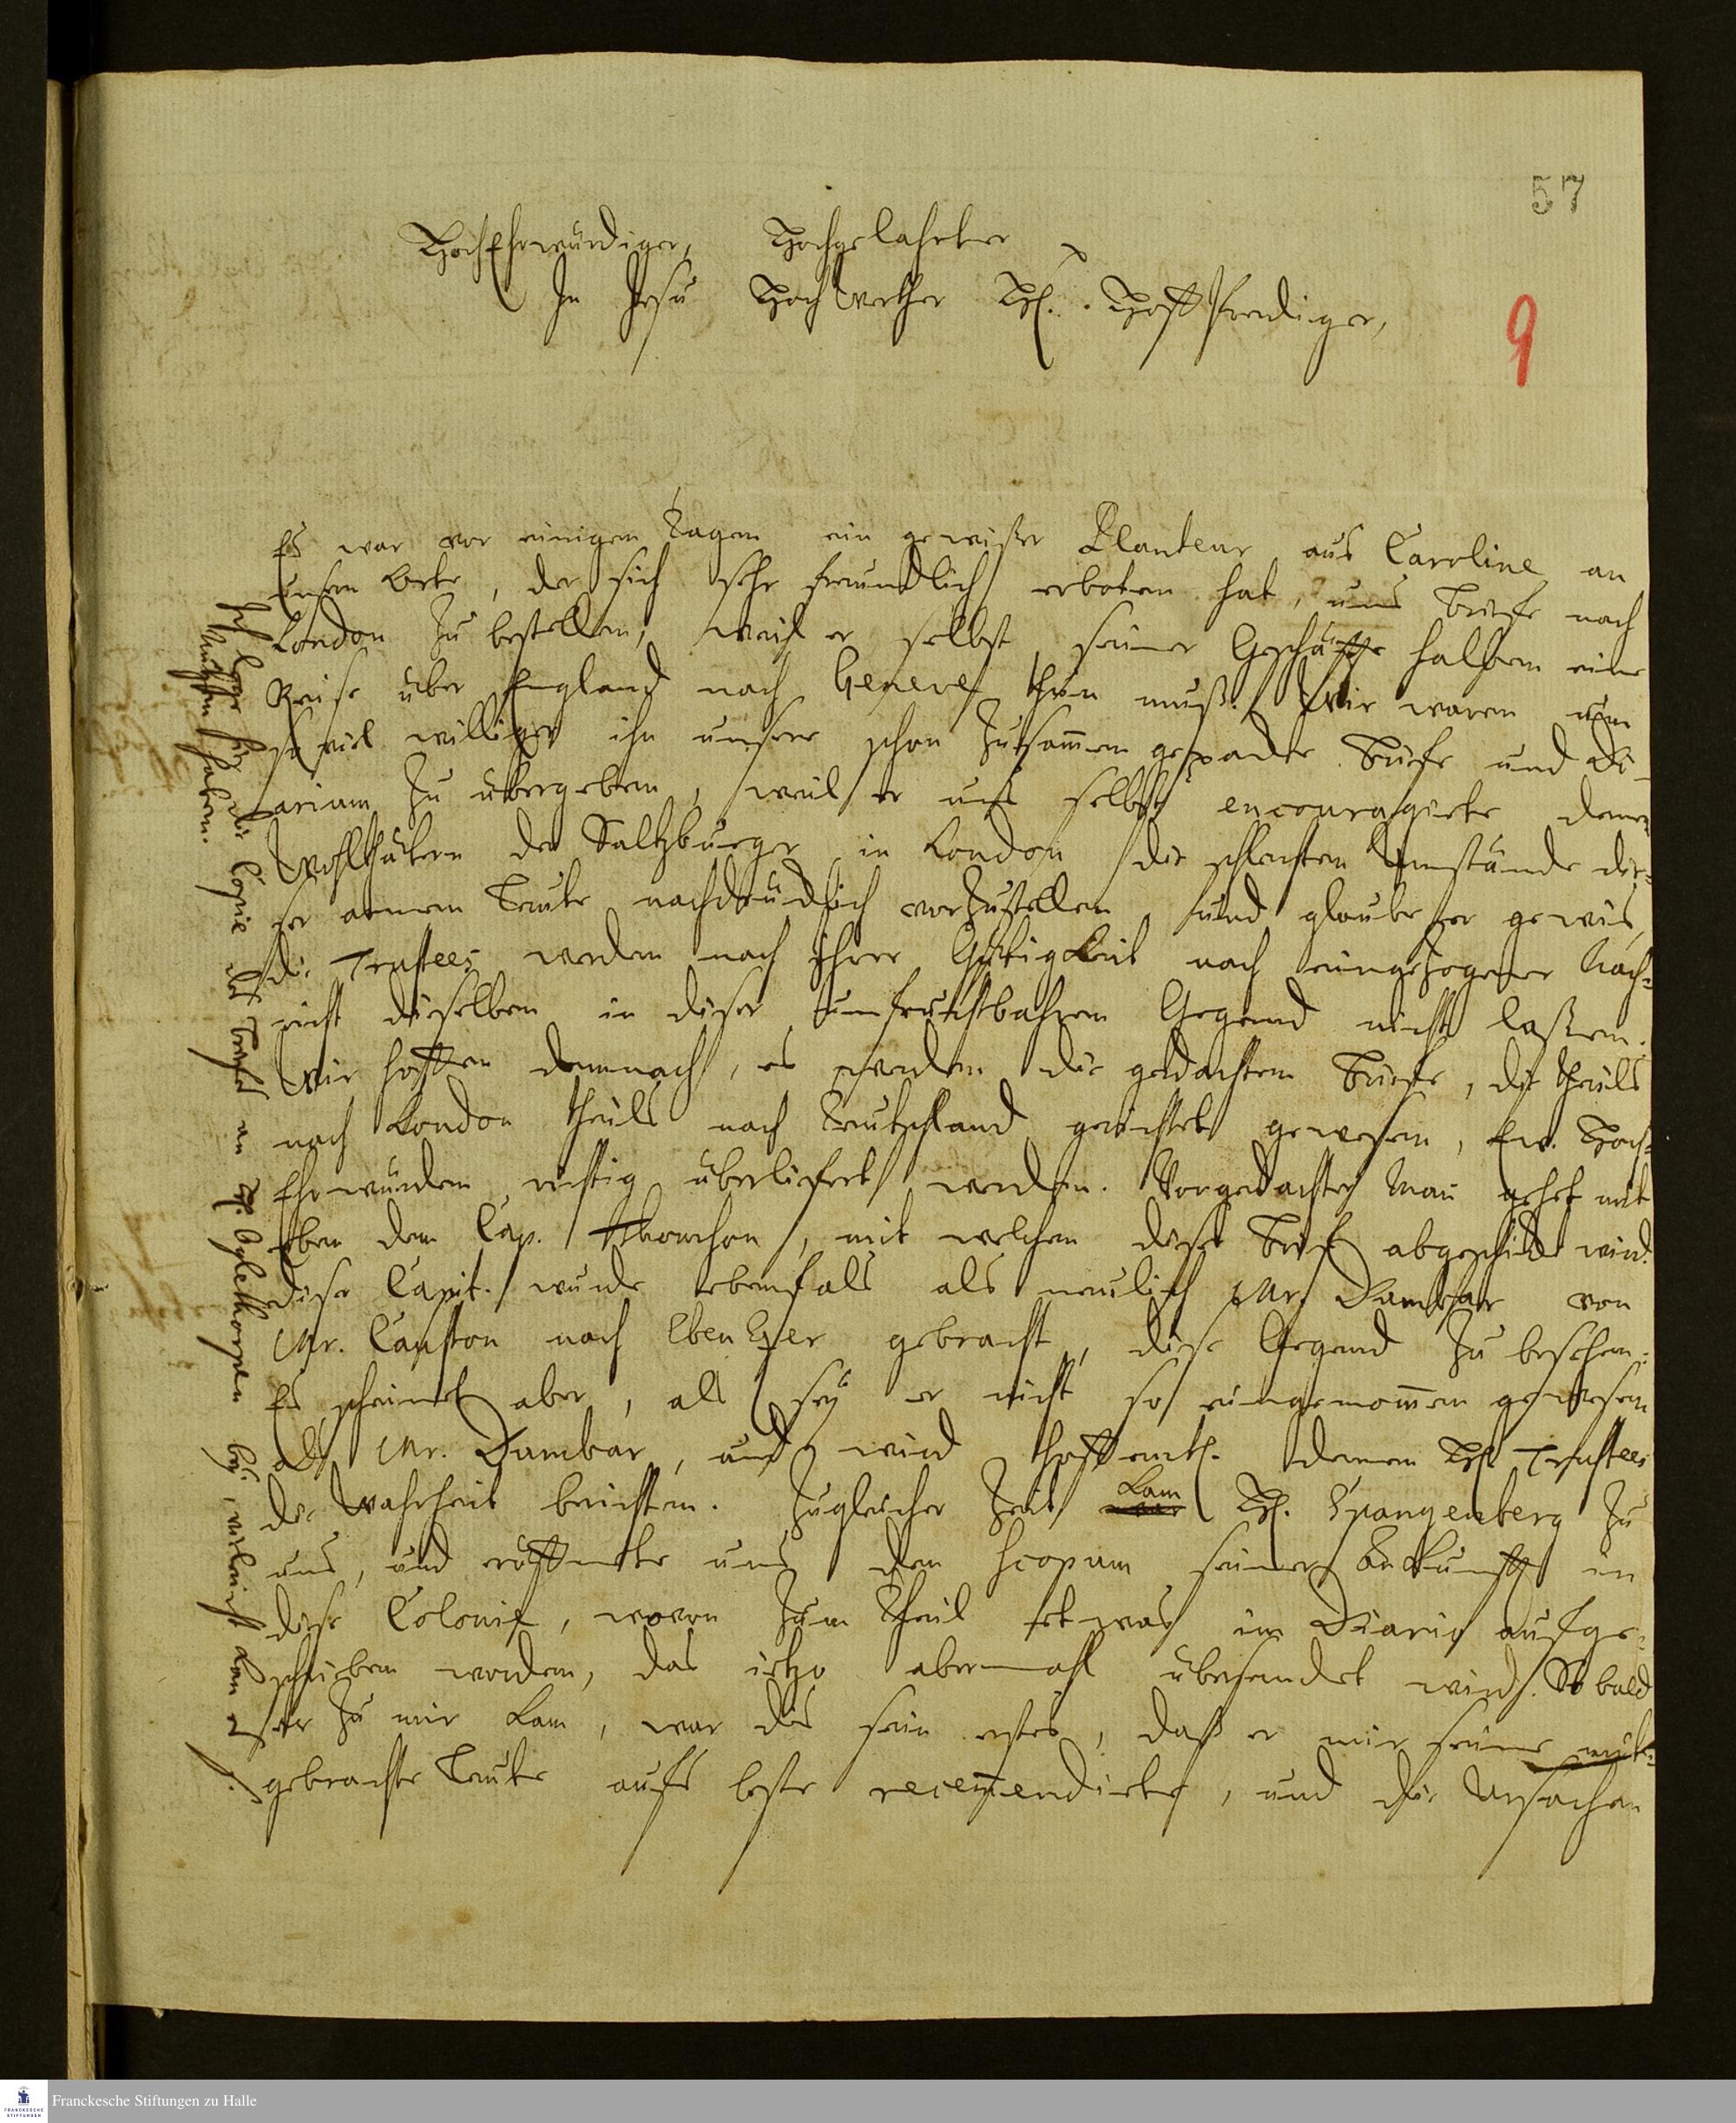 57
HochEhrwürdiger, Hochgelahrter
In Jesu HochWerther H. Hoff Prediger,
9
Es war vor einigen Tagen ein gewißer Planteur aus Caroline, an
unsern Orte, der sich sehr freundlich erboten hat, uns Briefe nach
London zu bestellen, weil er selbst seiner Geschäffte halben eine
Reise über England nach Geneve thun muß. Wir waren um
so viel williger ihn unsere schon zusam̄en gepackte Briefe und Di-
arium zu übergeben, weil er uns selbst encouragirte denen
Wohlthätern der Saltzburger in London die schlechten Umstände die-
ser armen Leute nachdrücklich vorzustellen, und glaube er gewis,
die Trustees werden nach Ihrer Gütigkeit nach eingezogener Nach-
richt dieselben in dieser unfruchtbahren Gegend nicht laßen.
Wir hoffen demnach, es werden die gedachten Briefe, die theils
nach London theils nach Teutschland gerichtet gewesen, Ew. Hoch-
Ehrwürden richtig überliefert werden. Vorgedachter Man̄ gehet mit
eben dem Cap. , mit welchem dieser Brief abgeschickt wird.
Dieser Capit. wurde ebenfals als neulich Mr. Dambar von
Mr. Causton nach EbenEzer gebracht, diese Gegend zu besehen.
Es scheinet aber, als sey er nicht so eingenom̄en gewesen
als Mr. Dumbar, und wird hoffentl. denen H. Trustees
die Wahrheit berichten. Zugleicher Zeit kam H. Spangenberg zu
uns, und eröffnete uns den scopum seiner Ankunfft in
diese Colonie, wovon zum Theil etwas im Diario aufge-
schrieben worden, das ietzo abermahl übersendet wird. So bald
er zu mir kam, war dis sein erstes, daß er mir seine mit-
gebrachte Leute aufs beste recom̄endirte, und die Ursachen
Ich lege hier die Copie des Briefes an H. Oglethorpen bey, vielleicht kan es s.
Nutzen haben.
Franckesche Stiftungen zu Halle